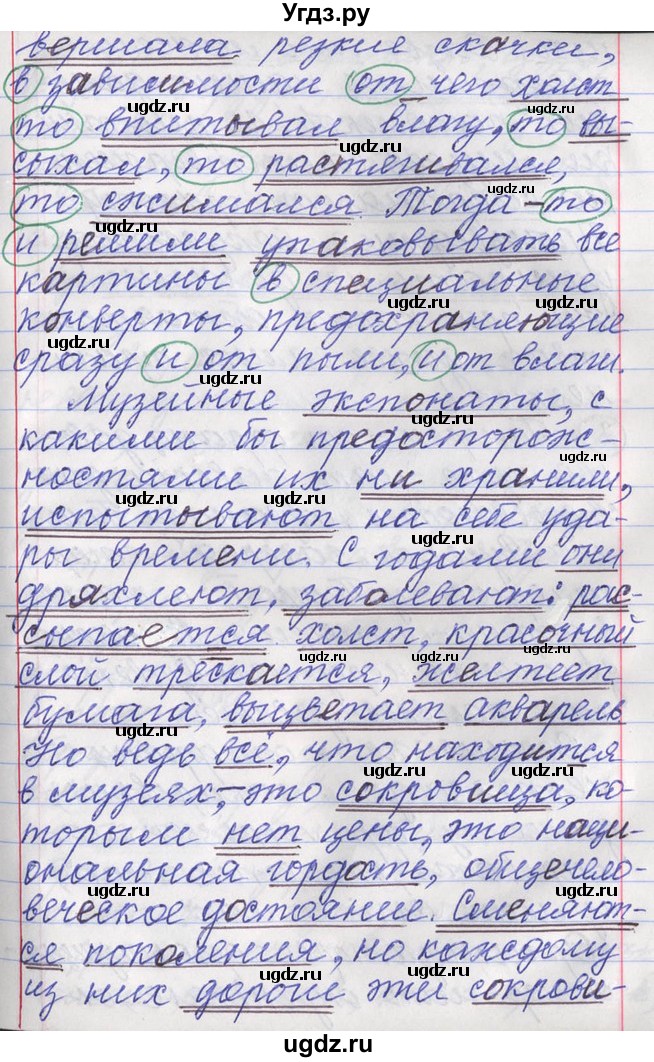 Угдз.ру
вершала резкие скачки,
в зависимости от чего холст
то впитывал влагу, то вы-
сыхал, то растягивался,
то сжимался. Тогда-то
и решили упаковывать все
картины в специальные
конверты, предохраняющие
сразу и от пыли, и от влаги.
Музейные экспонаты, с
какими бы предосторож-
ностями их ни хранили,
испытывают на себе уда-
ры времени. С годами они
дряхлеют, заболевают: рас-
сыпается холст, красочный
слой трескается, желтеет
бумага, выцветает акварель.
Но ведь всё, что находится
в музеях, – это сокровища, ко-
торым нет цены, это наци-
ональная гордость, общечело-
веческое достояние. Сменяют-
ся поколения, но каждому
из них дороги эти сокрови-
ugdz.ru